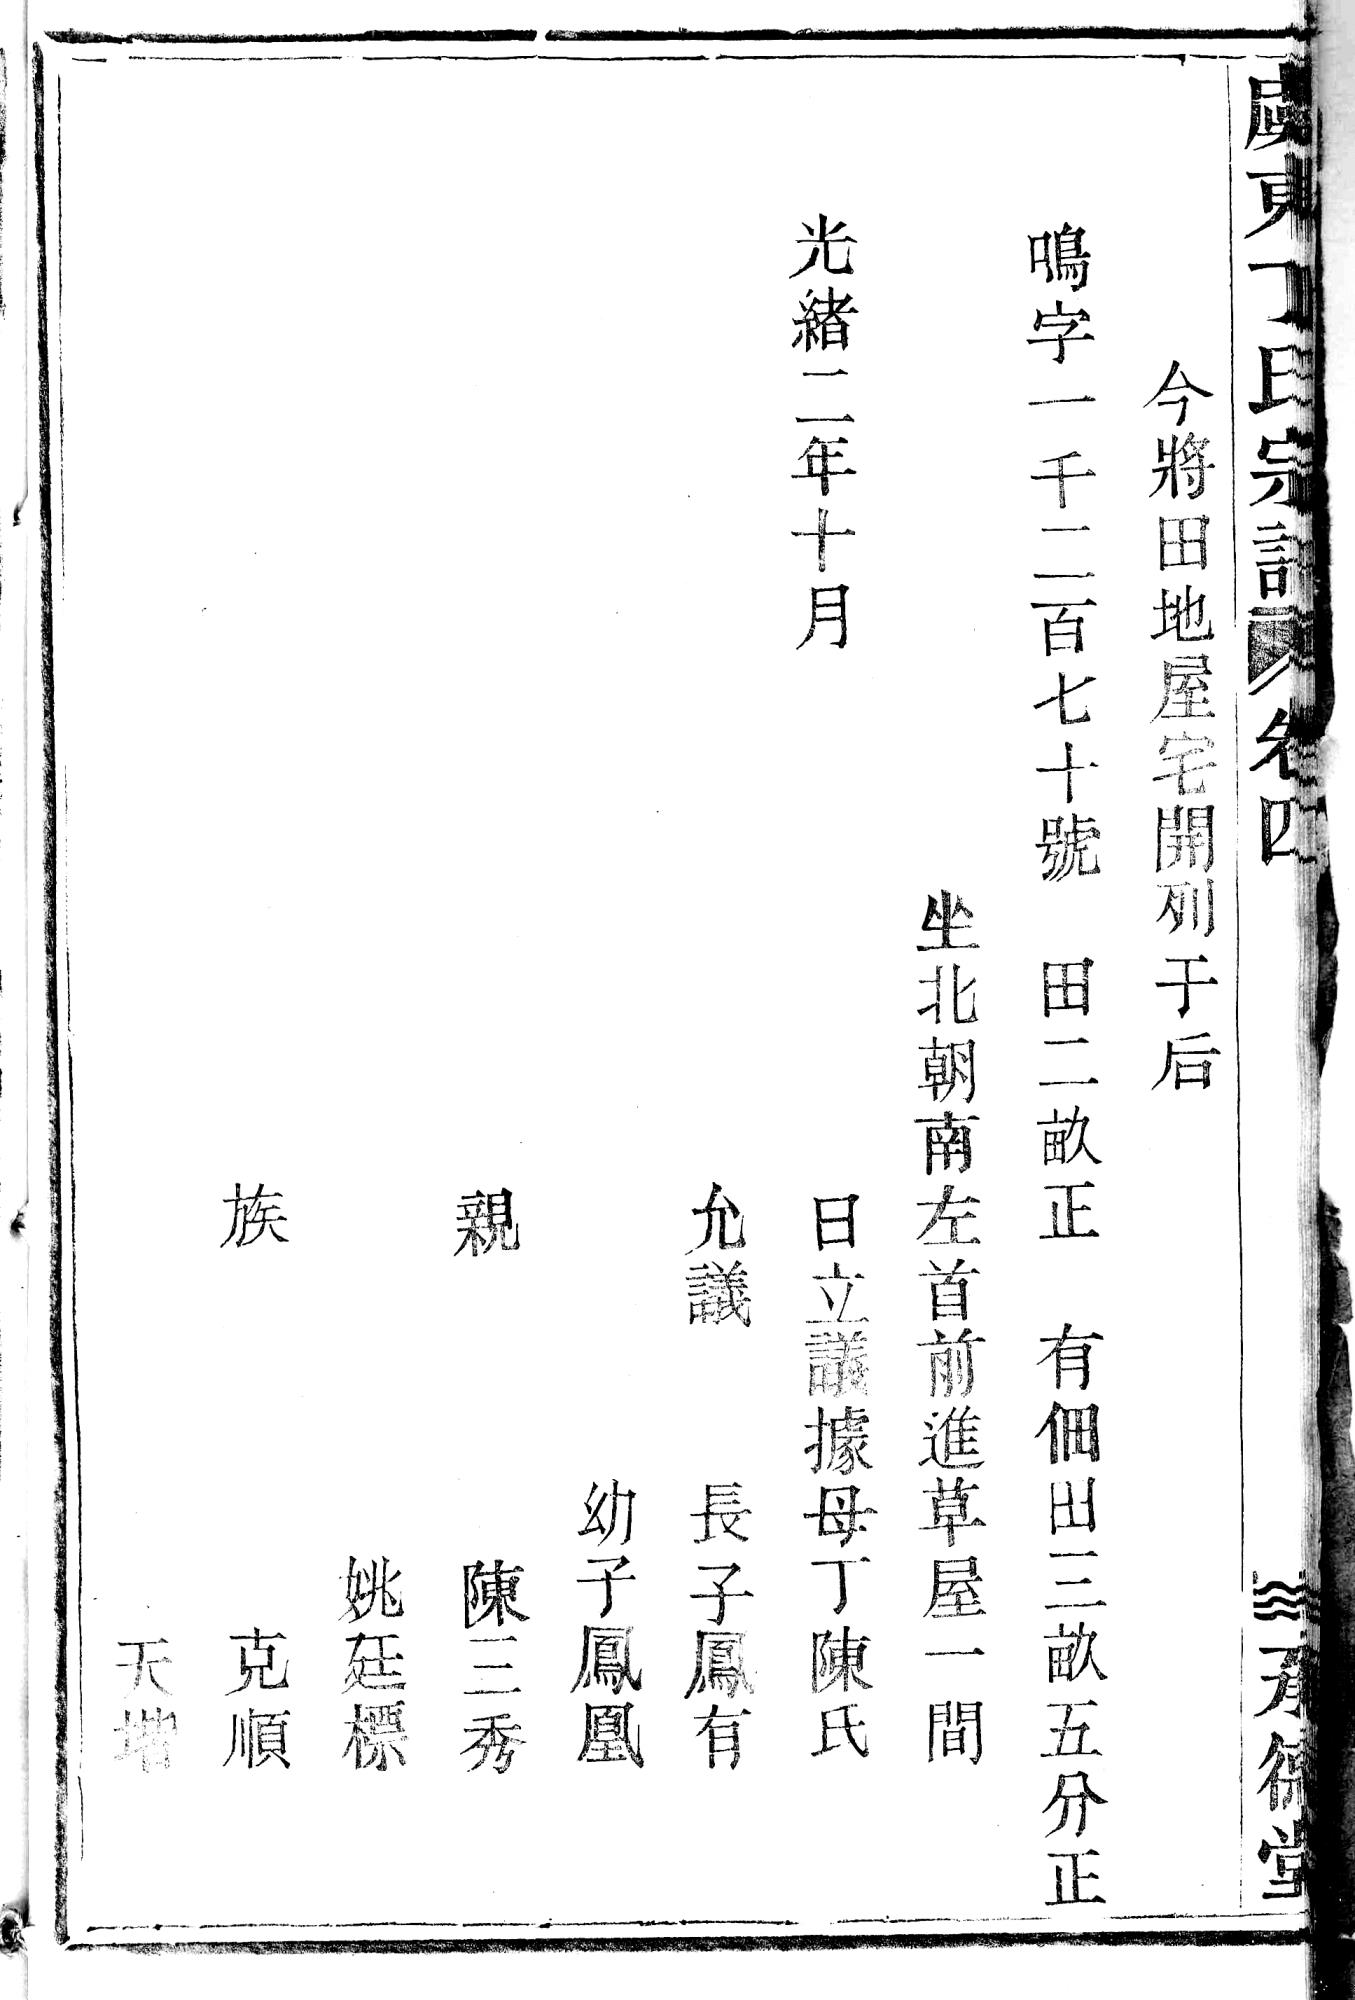 虞東丁氏宗譜 卷四 承德堂
今將田地屋宅開列于后
鳴字一千二百七十號 田二畝正 有佃田三畝五分正
坐北朝南左首前進草屋一間
光緒二年十月 日立議據母丁陳氏
允議 長子鳳有
幼子鳳凰
親 陳三秀
姚廷標
族 克順
天增